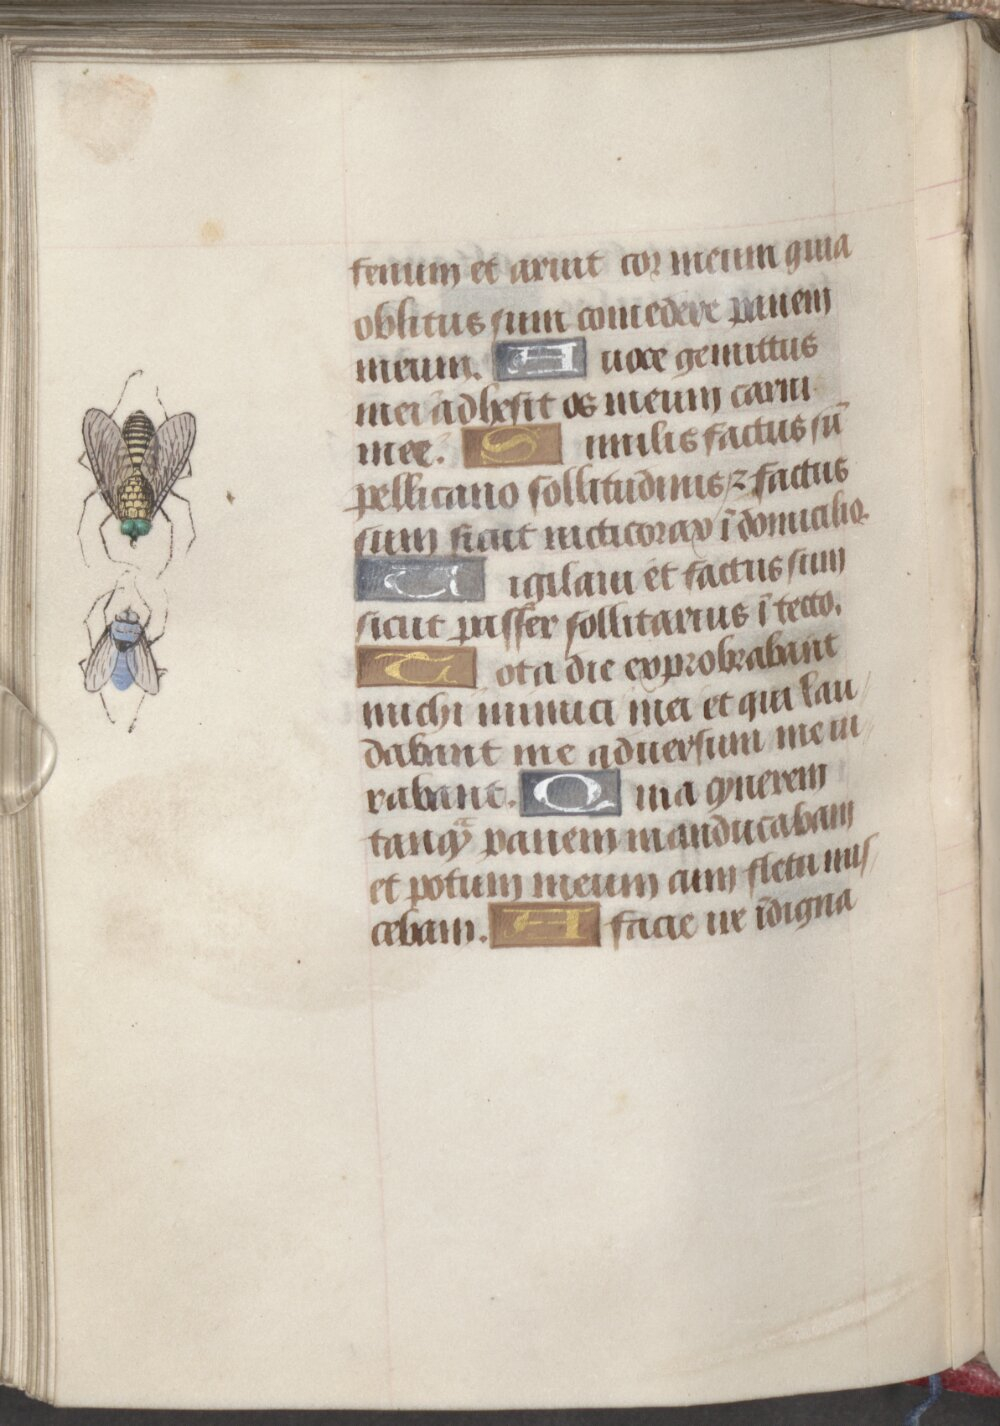 fenum et aruit cor meum quia
oblitus sum comedere panem
meum. A uoce gemittus
mei adhesit os meum carni
mee. S imilis factus sū
pellicano sollitudinis ⁊ factus
sum sicut nicticorax ī domicilio.
U igilaui et factus sum
sicut passer sollitarius ī tecto.
T ota die exprobrabant
michi inimici mei et qui lau
dabant me aduersum me iu
rabant. Q uia cynerem
tanqᷓ panem manducabam
et potum meum cum fletu mis
cebam. A facie ire īdigna